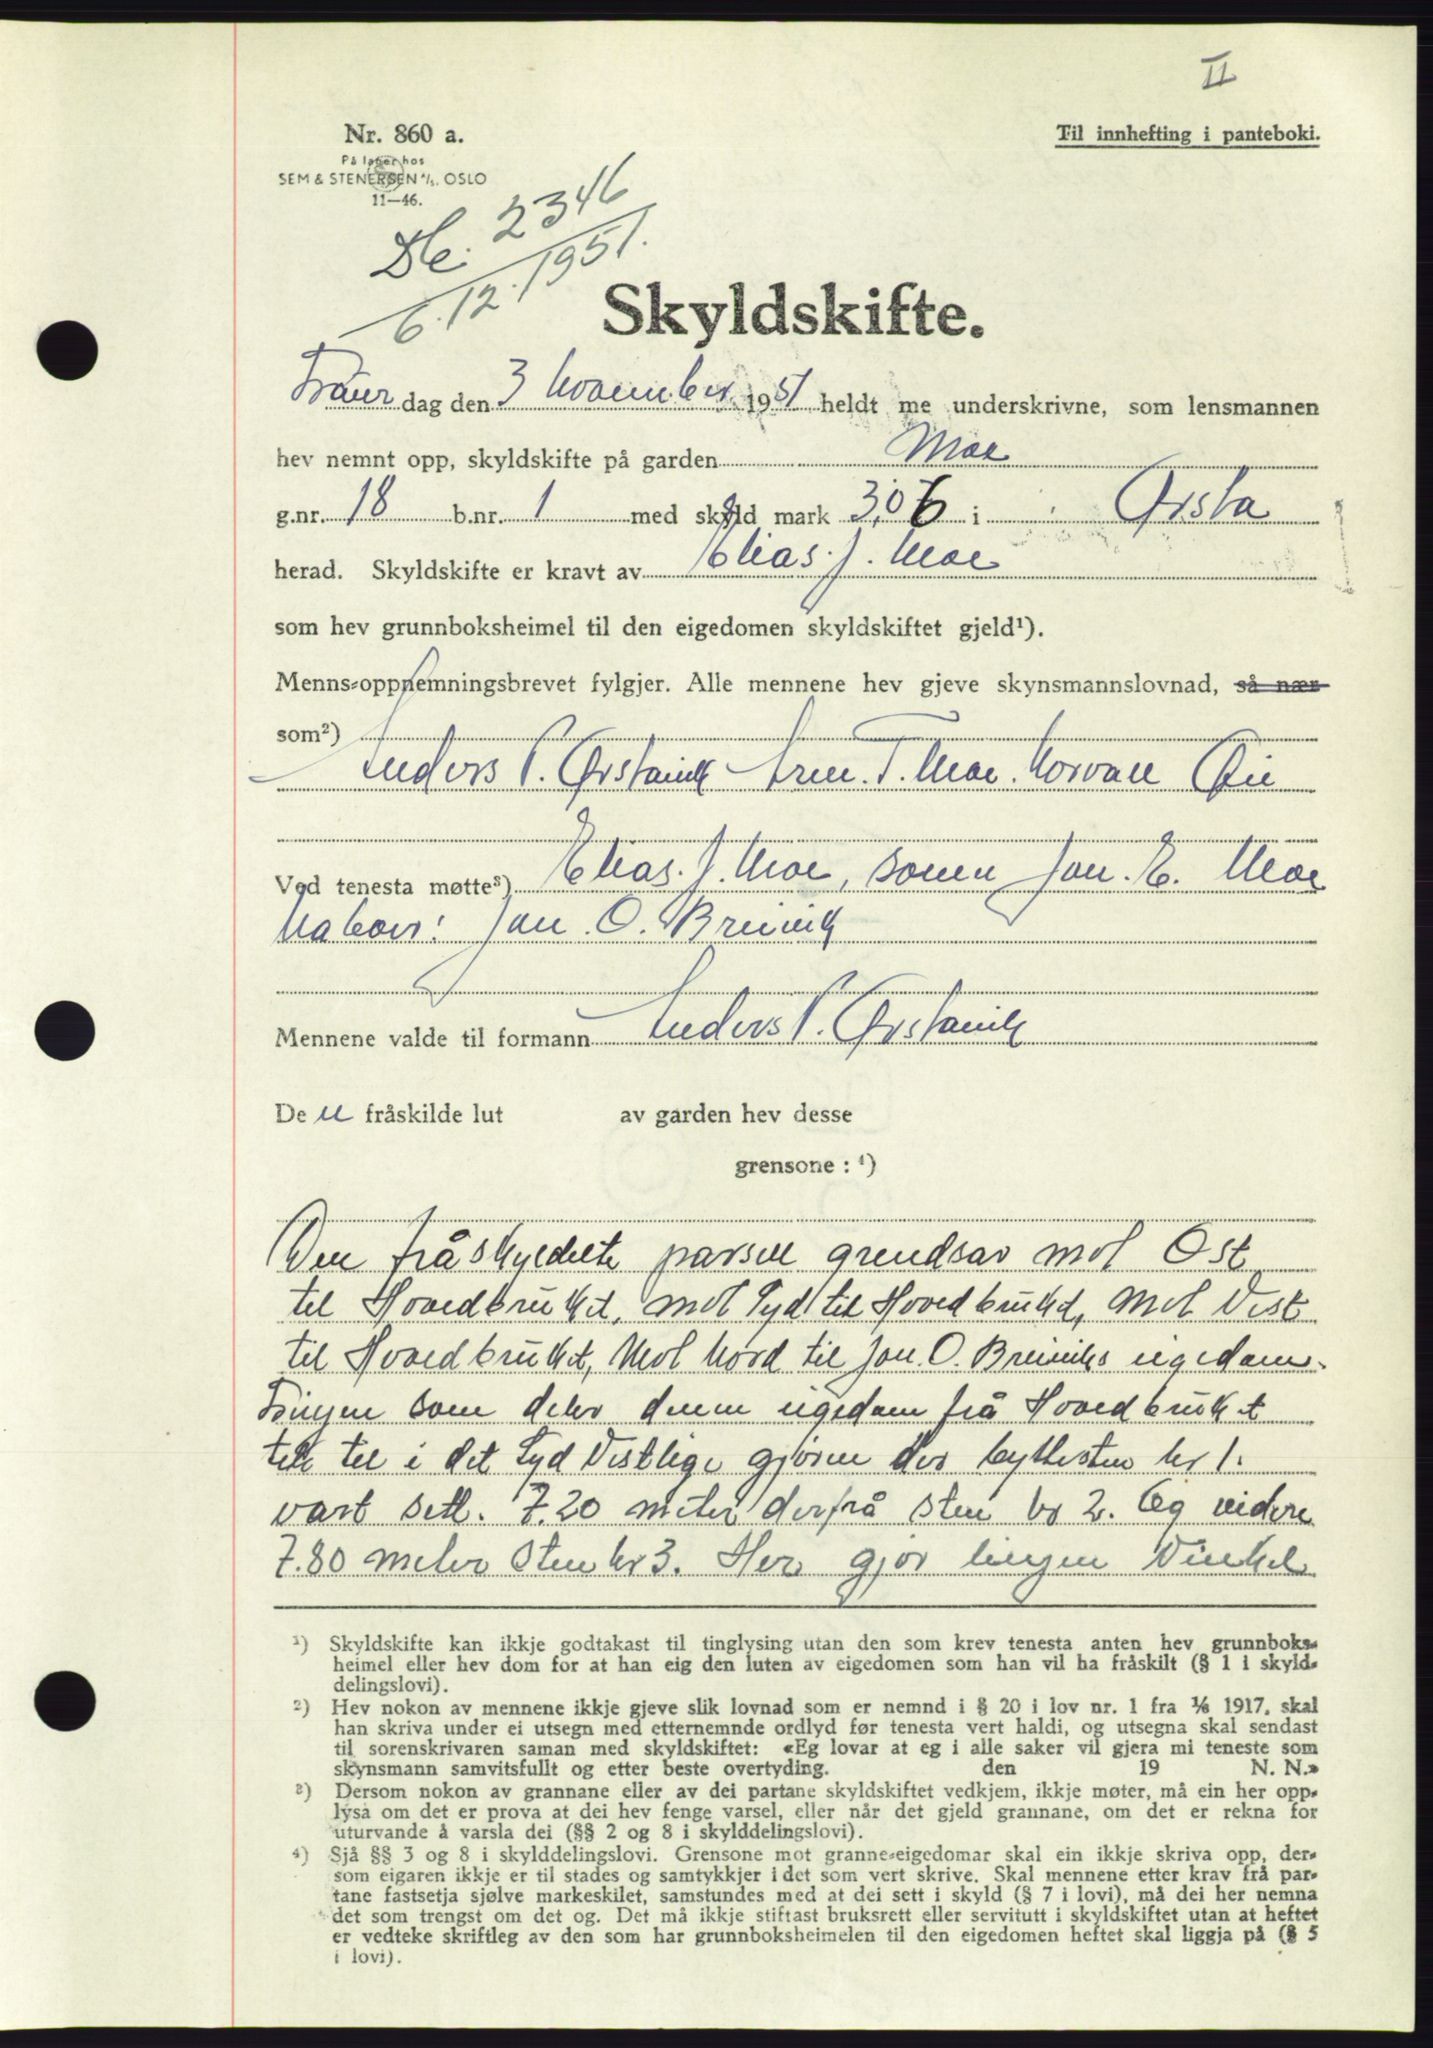 II
Nr. 860 a.
Til innhefting i panteboki.
På lager hos
SEM & STENERSEN A/S. OSLO
11—46.
2346
6.12.1951.
Skyldskifte.
dag den 3 November 1951 heldt me underskrivne, som lensmannen
hev nemnt opp, skyldskifte på garden Moe
g.nr. 18 b.nr. 1 med skyld mark 3,06 i Ørsta
herad. Skyldskifte er kravt av Elias. J. Moe
som hev grunnboksheimel til den eigedomen skyldskiftet gjeld¹).
Menns-oppnemningsbrevet fylgjer. Alle mennene hev gjeve skynsmannslovnad, så nær
som²)
Anders P. Ørstavik Arne. T. Moe. Norvall
Ved tenesta møtte³) Elias. J. Moe, sonen Jon. E. Moe
Naboer: Jon. O. Breivik
Mennene valde til formann Anders P. Ørstavik
De n fråskilde lut av garden hev desse
grensone : ⁴)
Den fråskyldete parsell grendsar mot Ost
til Hovedbruket, mot Syd til Hovedbruket, Mot Vest
til Hovedbruket, Mot Nord til Jon. O. Breiviks eigedom.
som deler denne eigedom frå Hovedbruket
til i det Syd Vestlige der byttesten Nr 1.
vart sett. 7.20 meter derfrå sten Nr 2. Og videre
7.80 meter Sten Nr 3. Her gjør linjen Vinkel
¹) Skyldskifte kan ikkje godtakast til tinglysing utan den som krev tenesta anten hev grunnboks-
heimel eller hev dom for at han eig den luten av eigedomen som han vil ha fråskilt (§ 1 i skyld-
delingslovi).
²) Hev nokon av mennene ikkje gjeve slik lovnad som er nemnd i § 20 i lov nr. 1 fra ¹/₆ 1917, skal
han skriva under ei utsegn med etternemnde ordlyd før tenesta vert haldi, og utsegna skal sendast
til sorenskrivaren saman med skyldskiftet: «Eg lovar at eg i alle saker vil gjera mi teneste som
skynsmann samvitsfullt og etter beste overtyding. den 19 N. N.»
³) Dersom nokon av grannane eller av dei partane skyldskiftet vedkjem, ikkje møter, må ein her opp-
lysa om det er prova at dei hev fenge varsel, eller når det gjeld grannane, om det er rekna for
uturvande å varsla dei (§§ 2 og 8 i skylddelingslovi).
⁴) Sjå §§ 3 og 8 i skylddelingslovi. Grensone mot granne-eigedomar skal ein ikkje skriva opp, der-
som eigaren ikkje er til stades og samtykkjer i det som vert skrive. Skal mennene etter krav frå par-
tane fastsetja sjølve markeskilet, samstundes med at dei sett i skyld (§ 7 i lovi), må dei her nemna
det som trengst om det og. Det må ikkje stiftast bruksrett eller servitutt i skyldskiftet utan at heftet
er vedteke skriftleg av den som har grunnboksheimelen til den eigedomen heftet skal liggja på (§ 5
i lovi).